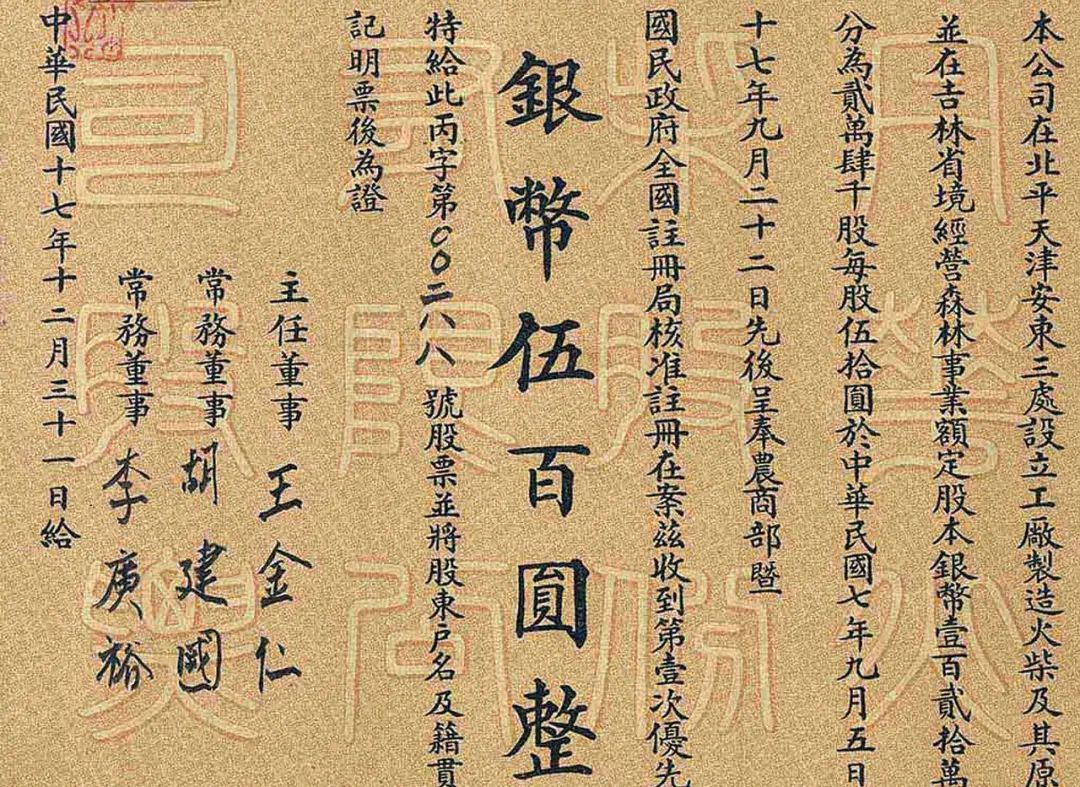 本公司在北平天津安東三處設立工廠製造火柴及其原
並在吉林省境經營森林事業額定股本銀幣壹百貳拾萬
分為貳萬肆千股每股伍拾圓於中華民國七年九月五日
十七年九月二十二日先後呈奉農商部暨
國民政府全國註冊局核准註冊在案茲收到第壹次優先
銀幣伍百圓整
特給此丙字第〇〇二八八號股票並將股東戶名及籍貫
記明票後為證
主任董事 王金仁
常務董事 胡建國
常務董事 李庚裕
中華民國十七年十二月三十一日給